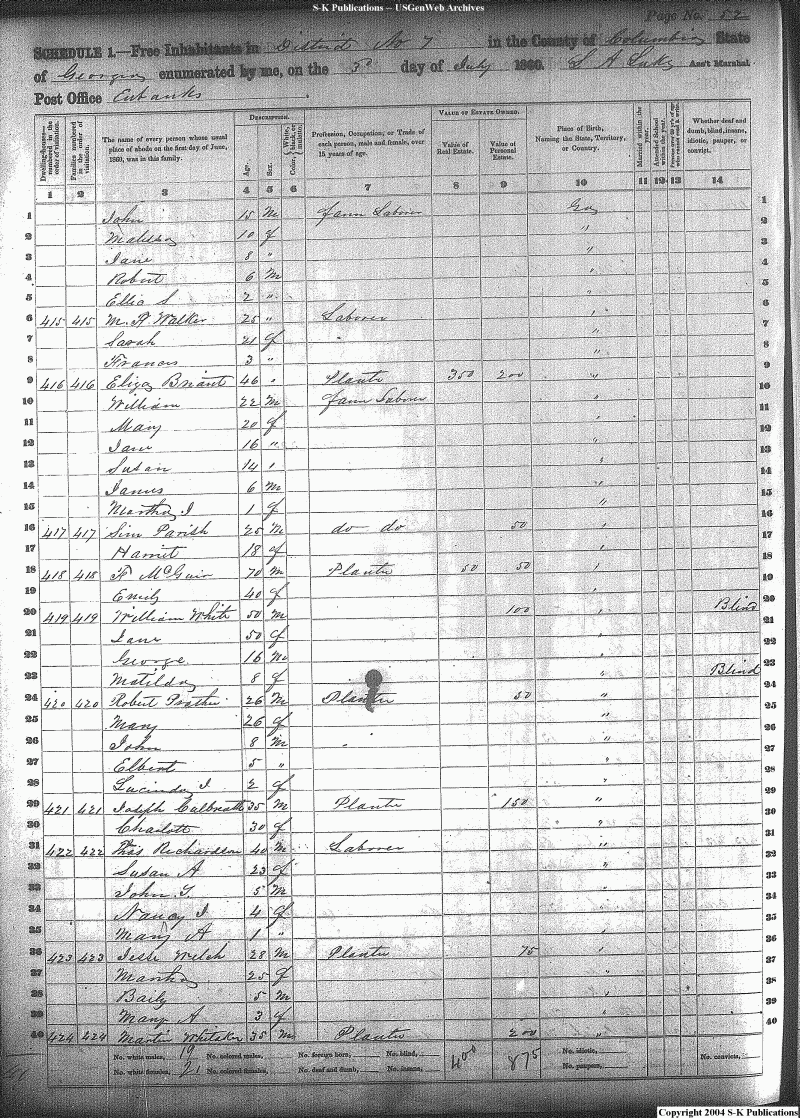 S-K Publications -- USGenWeb Archives
Page No. 52
SCHEDULE 1.—Free Inhabitants in District No 7 in the County of Columbia State
of Georgia enumerated by me, on the 3d day of July 1860. S A Luke Ass't Marshal
Post Office Eubanks
Dwelling-houses—numbered in the order of visitation.
Families numbered in the order of visitation.
The name of every person whose usual place of abode on the first day of June, 1860, was in this family.
DESCRIPTION.
Age.
Sex.
Color, White, black, or mulatto.
Profession, Occupation, or Trade of each person, male and female, over 15 years of age.
VALUE OF ESTATE OWNED.
Value of Real Estate.
Value of Personal Estate.
Place of Birth, Naming the State, Territory, or Country.
Married within the year.
Attended School within the year.
Whether deaf and dumb, blind, insane, idiotic, pauper, or convict.
1 2 3 4 5 6 7 8 9 10 11 12 13 14
1 John 15 M Farm Laborer Ga 1
2 10 f " 2
3 Jane 8 " " 3
4 Robert 6 M " 4
5 Ellis S 2 " " 5
6 415 415 M. A Walker 25 " Laborer " 6
7 Sarah 21 f " " 7
8 Frances 3 " " 8
9 416 416 Eliza Briant 46 " Plante 350 200 " 9
10 William 22 M Farm Laborer " 10
11 Mary 20 f " 11
12 Jane 16 " " 12
13 Susan 14 " " 13
14 James 6 M " 14
15 Martha J 1 f " 15
16 417 417 Sim Parish 25 M do do 50 " 16
17 Harriet 18 f " 17
18 418 418 McGuir 70 M Plante 50 50 " 18
19 Emily 40 f " 19
20 419 419 William White 50 M 100 " Blind 20
21 Jane 50 f " 21
22 George 16 M " 22
23 Matilda 8 f " Blind 23
24 420 420 Robert Prather 26 M Plante 50 " 24
25 Mary 26 f " 25
26 John 8 M " " 26
27 Elbert 5 " " 27
28 Lucinda J 2 f " 28
29 421 421 Joseph Culbreath 35 M Plante 150 " 29
30 Charlott 30 f " 30
31 422 422 Thos Richardson 40 M Laborer " 31
32 Susan A 23 f " 32
33 John T. 5 M 33
34 Nancy J 4 f " 34
35 Mary A 1 " " 35
36 423 423 Jesse Welch 28 M Plante 75 " 36
37 Martha 25 f " 37
38 Baily 5 M " 38
39 Mary A 3 f " 39
40 424 424 Martin Whitaker 35 M Plante 200 " 40
No. white males, 19 No. colored males, No. foreign born, No. blind, 400 875 No. idiotic, No. convicts,
No. white females, 21 No. colored females, No. deaf and dumb, No. insane, No. paupers,
Copyright 2004 S-K Publications